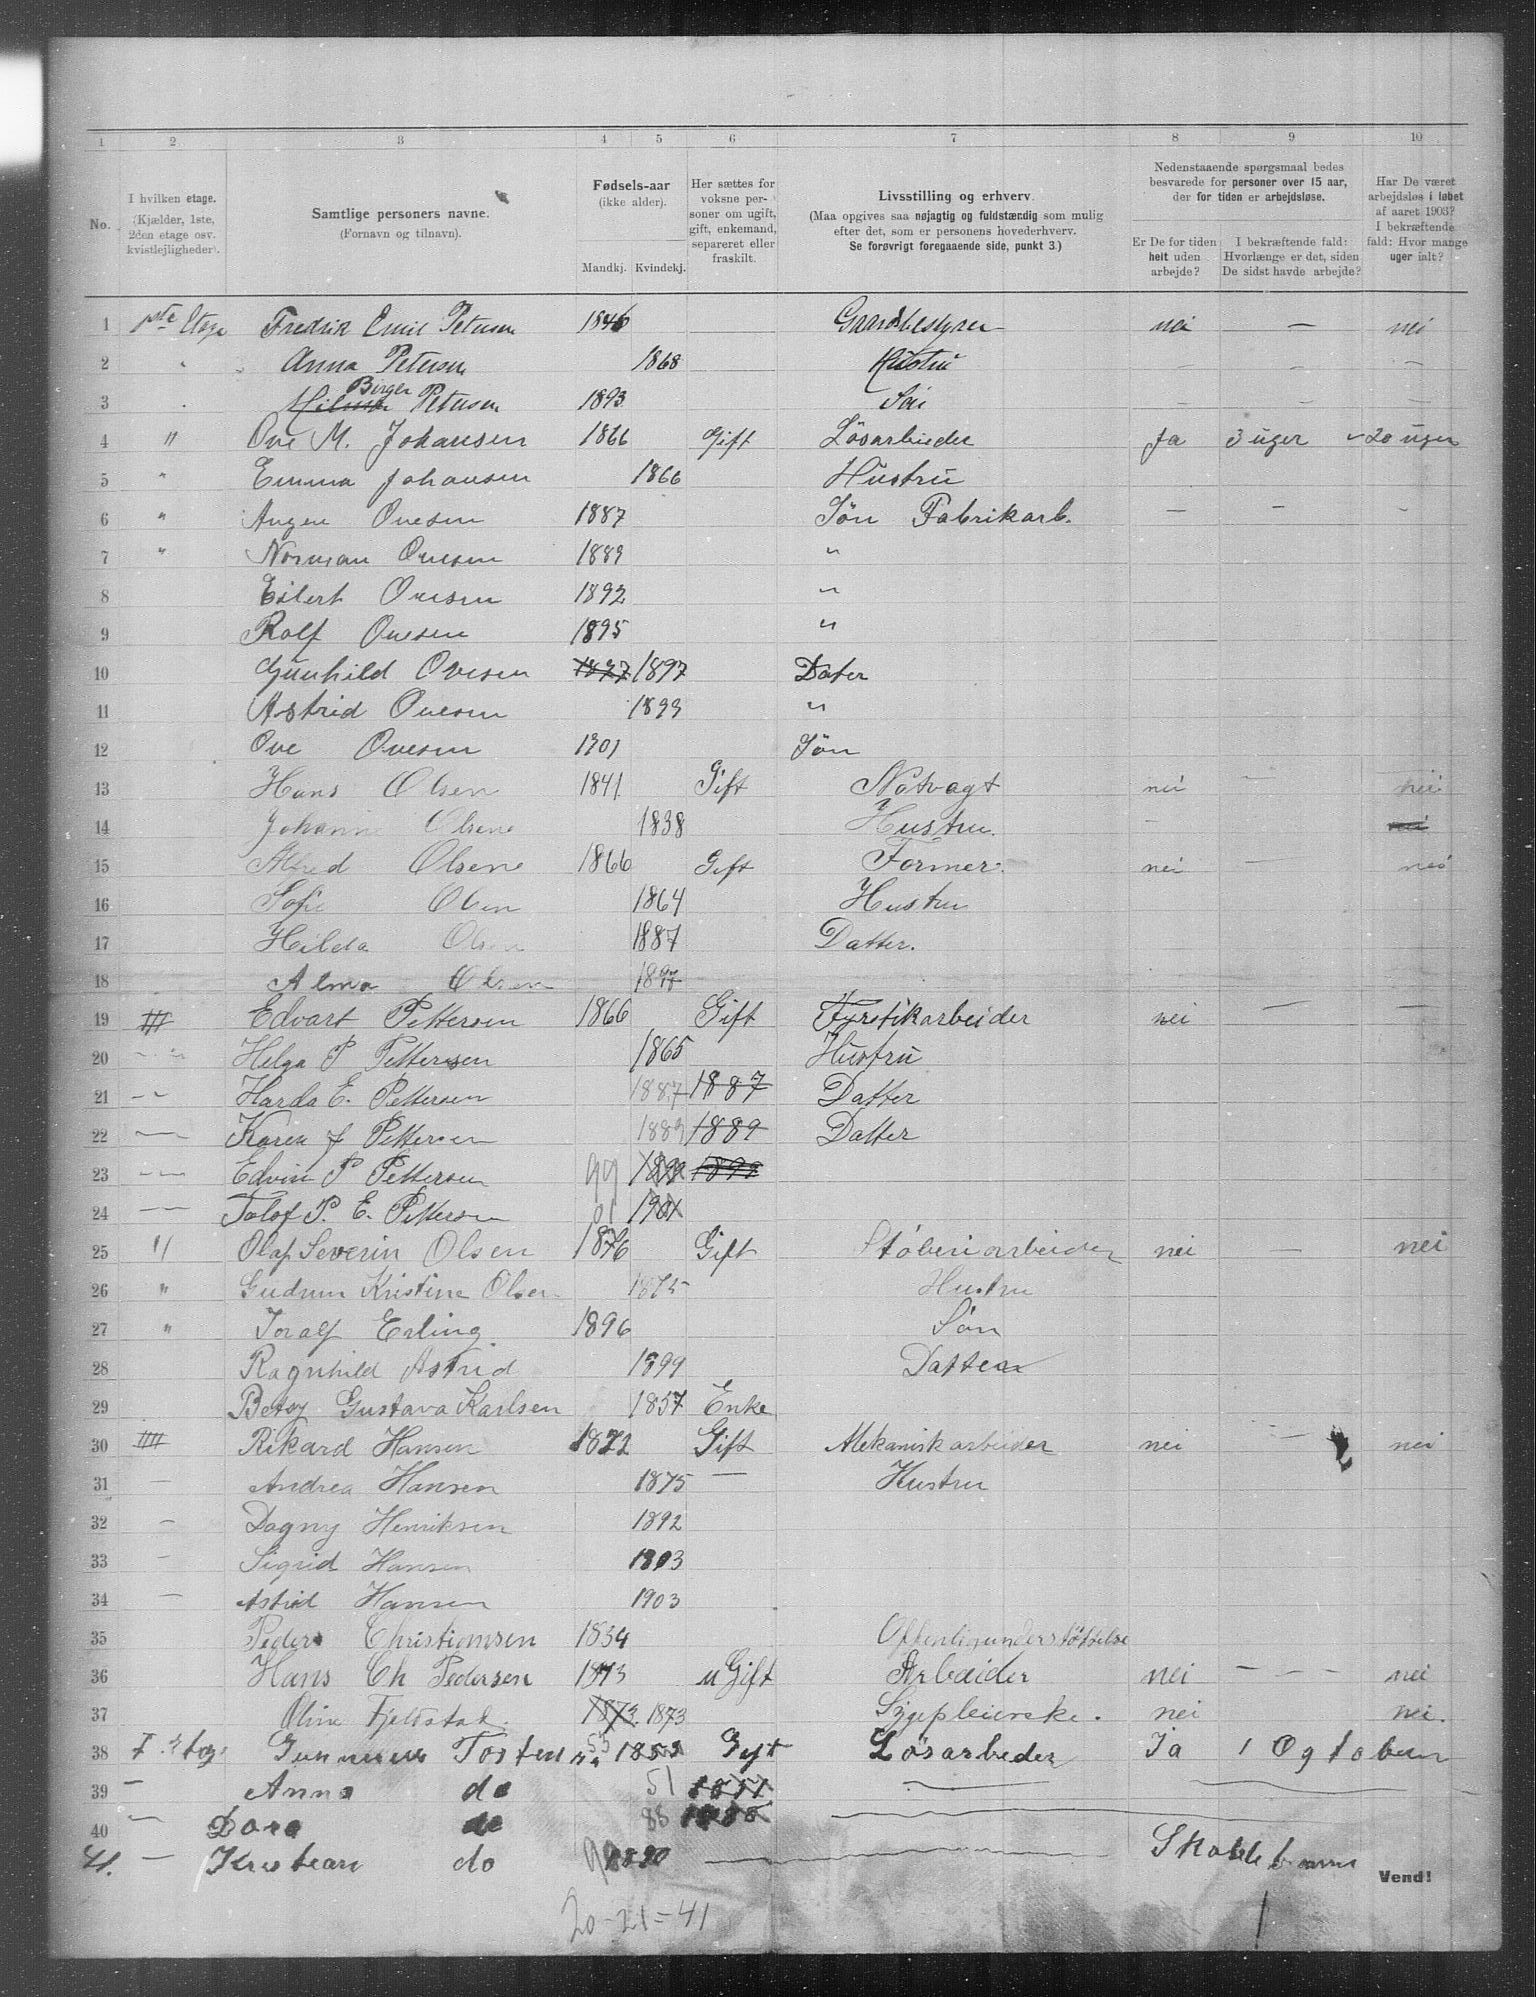 1 2 3 4 5 6 7 8 9 10
No.
I hvilken etage.
(Kjælder, 1ste,
2den etage osv.
kvistlejligheder).
Samtlige personers navne.
(Fornavn og tilnavn).
Fødsels-aar
(ikke alder).
Mandkj. Kvindekj.
Her sættes for
voksne per-
soner om ugift,
gift, enkemand,
separeret eller
fraskilt.
Livsstilling og erhverv.
(Maa opgives saa nøjagtig og fuldstændig som mulig
efter det, som er personens hovederhverv.
Se forøvrigt foregaaende side, punkt 3.)
Nedenstaaende spørgsmaal bedes
besvarede for personer over 15 aar,
der for tiden er arbejdsløse.
Er De for tiden
helt uden
arbejde?
I bekræftende fald:
Hvorlænge er det, siden
De sidst havde arbejde?
Har De været
arbejdsløs i løbet
af aaret 1903?
I bekræftende
fald: Hvor mange
uger ialt?
1 1ste Etage Fredrik Emil Petersen 1846 Gaardbestyrer nei — nei
2 " Anna Petersen 1868 Hustru — — —
3 " Birger Petersen 1893 Søn — — —
4 " Ove M. Johansen 1866 Gift Løsarbieder Ja 3 uger 20 uger
5 " Emma Johansen 1866 Hustru
6 " Ovesen 1887 Søn Fabrikarb. — — —
7 " Norman Ovesen 1889 "
8 Eilert Ovesen 1892 "
9 Rolf Ovesen 1895 "
10 Gunhild Ovesen 1897 1897 Dater
11 Astrid Ovesen 1899 "
12 Ove Ovesen 1901 Søn
13 Hans Olsen 1841 Gift Natvagt nei — nei
14 Johanne Olsene 1838 Hustru. — nei
15 Alfred Olsene 1866 Gift Former. nei — nei
16 Sofie Olsen 1864 Hustru
17 Hilda Olsen 1887 Datter.
18 Alma Olsen
19 Edvart Pettersen 1866 Gift Fyrstikarbeider nei — —
20 Helga P Pettersen 1865 Hustru
21 Harda E. Pettersen 1887 1887 Datter
22 Karen J Pettersen 1889 1889 Datter
23 Edvin P Pettersen 99 1899 1899
24 Tolof P. E. Pettersen 01 1901
25 " Olaf Severin Olsen 1876 Gift Støberiarbeider nei — nei
26 " Gudrun Kristine Olsen 1875 Hustru
27 " Toralf Erling 1896 Søn
28 Ragnhild Astrid 1899 Datter
29 Betsy Gustava Karlsen 1857 Enke
30 Rikard Hansen 1872 Gift Mekaniskarbeider nei — nei
31 — Andrea Hansen 1875 — Hustru
32 — Dagny Henriksen 1892
33 — Sigrid Hansen
34 — Astrid Hansen 1903
35 Peder Christiansen 1834 Offenligunderstøttelse
36 Hans Ch Pedersen 1873 uGift Arbeider nei — — — nei
37 Oline Fjeldstad. 1873. 1873 Sygepleierske. nei nei.
38 Tosten 53 Gift Løsarbeder Ja 1 Ogtober
39 — Anna do 51 1851
40 — Dora do 88 1888
41. — Kristian do 90 1890 Skolebarn
Vend!
20-21=41